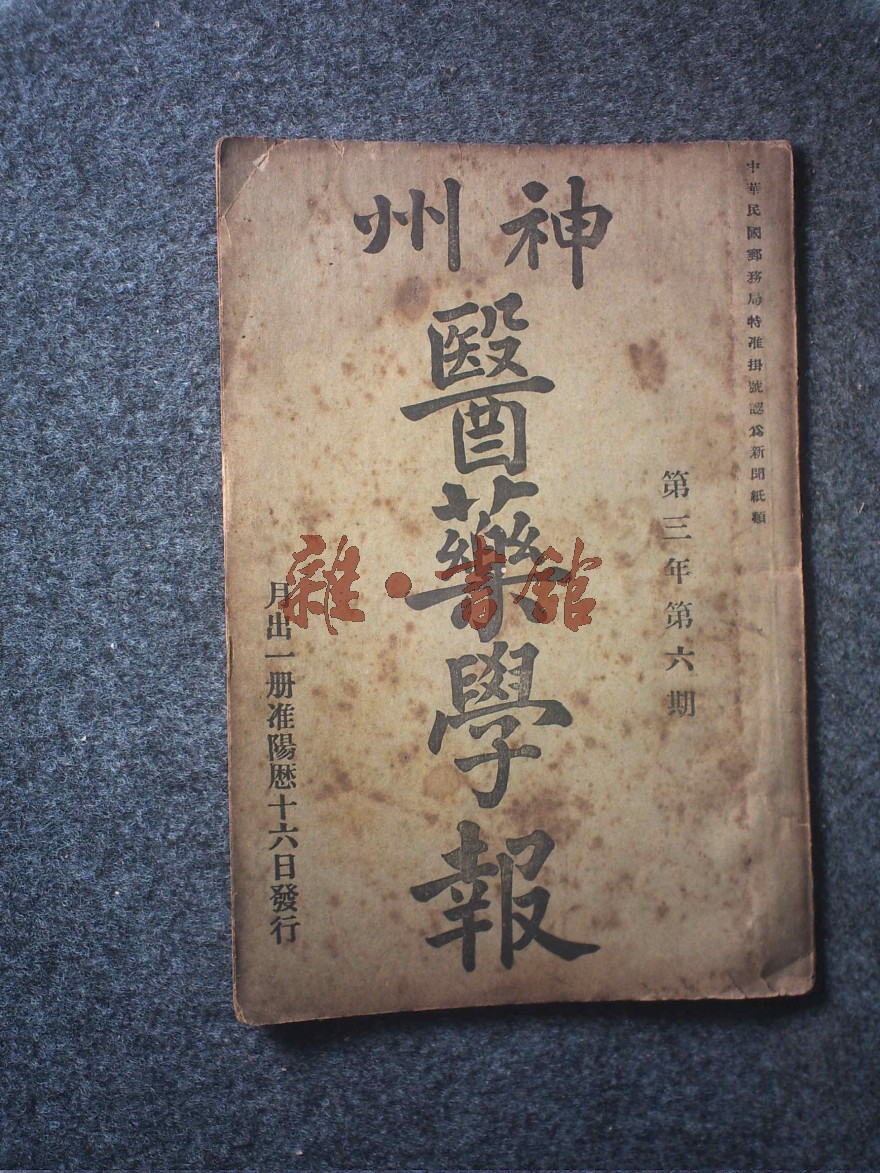 中華民國郵務局特准掛號認爲新聞紙類
第三年第六期
神州
醫藥學報
月出一册准陽歷十六日發行
雜·書館